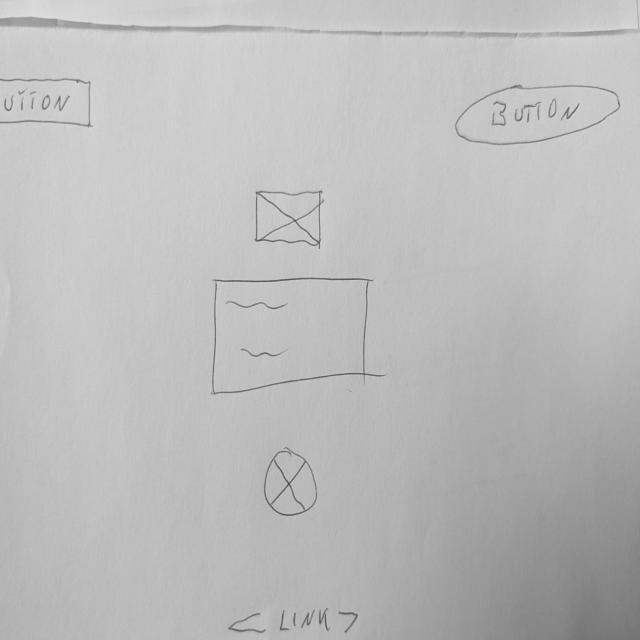 UTTON
BUTTON
< LINK >